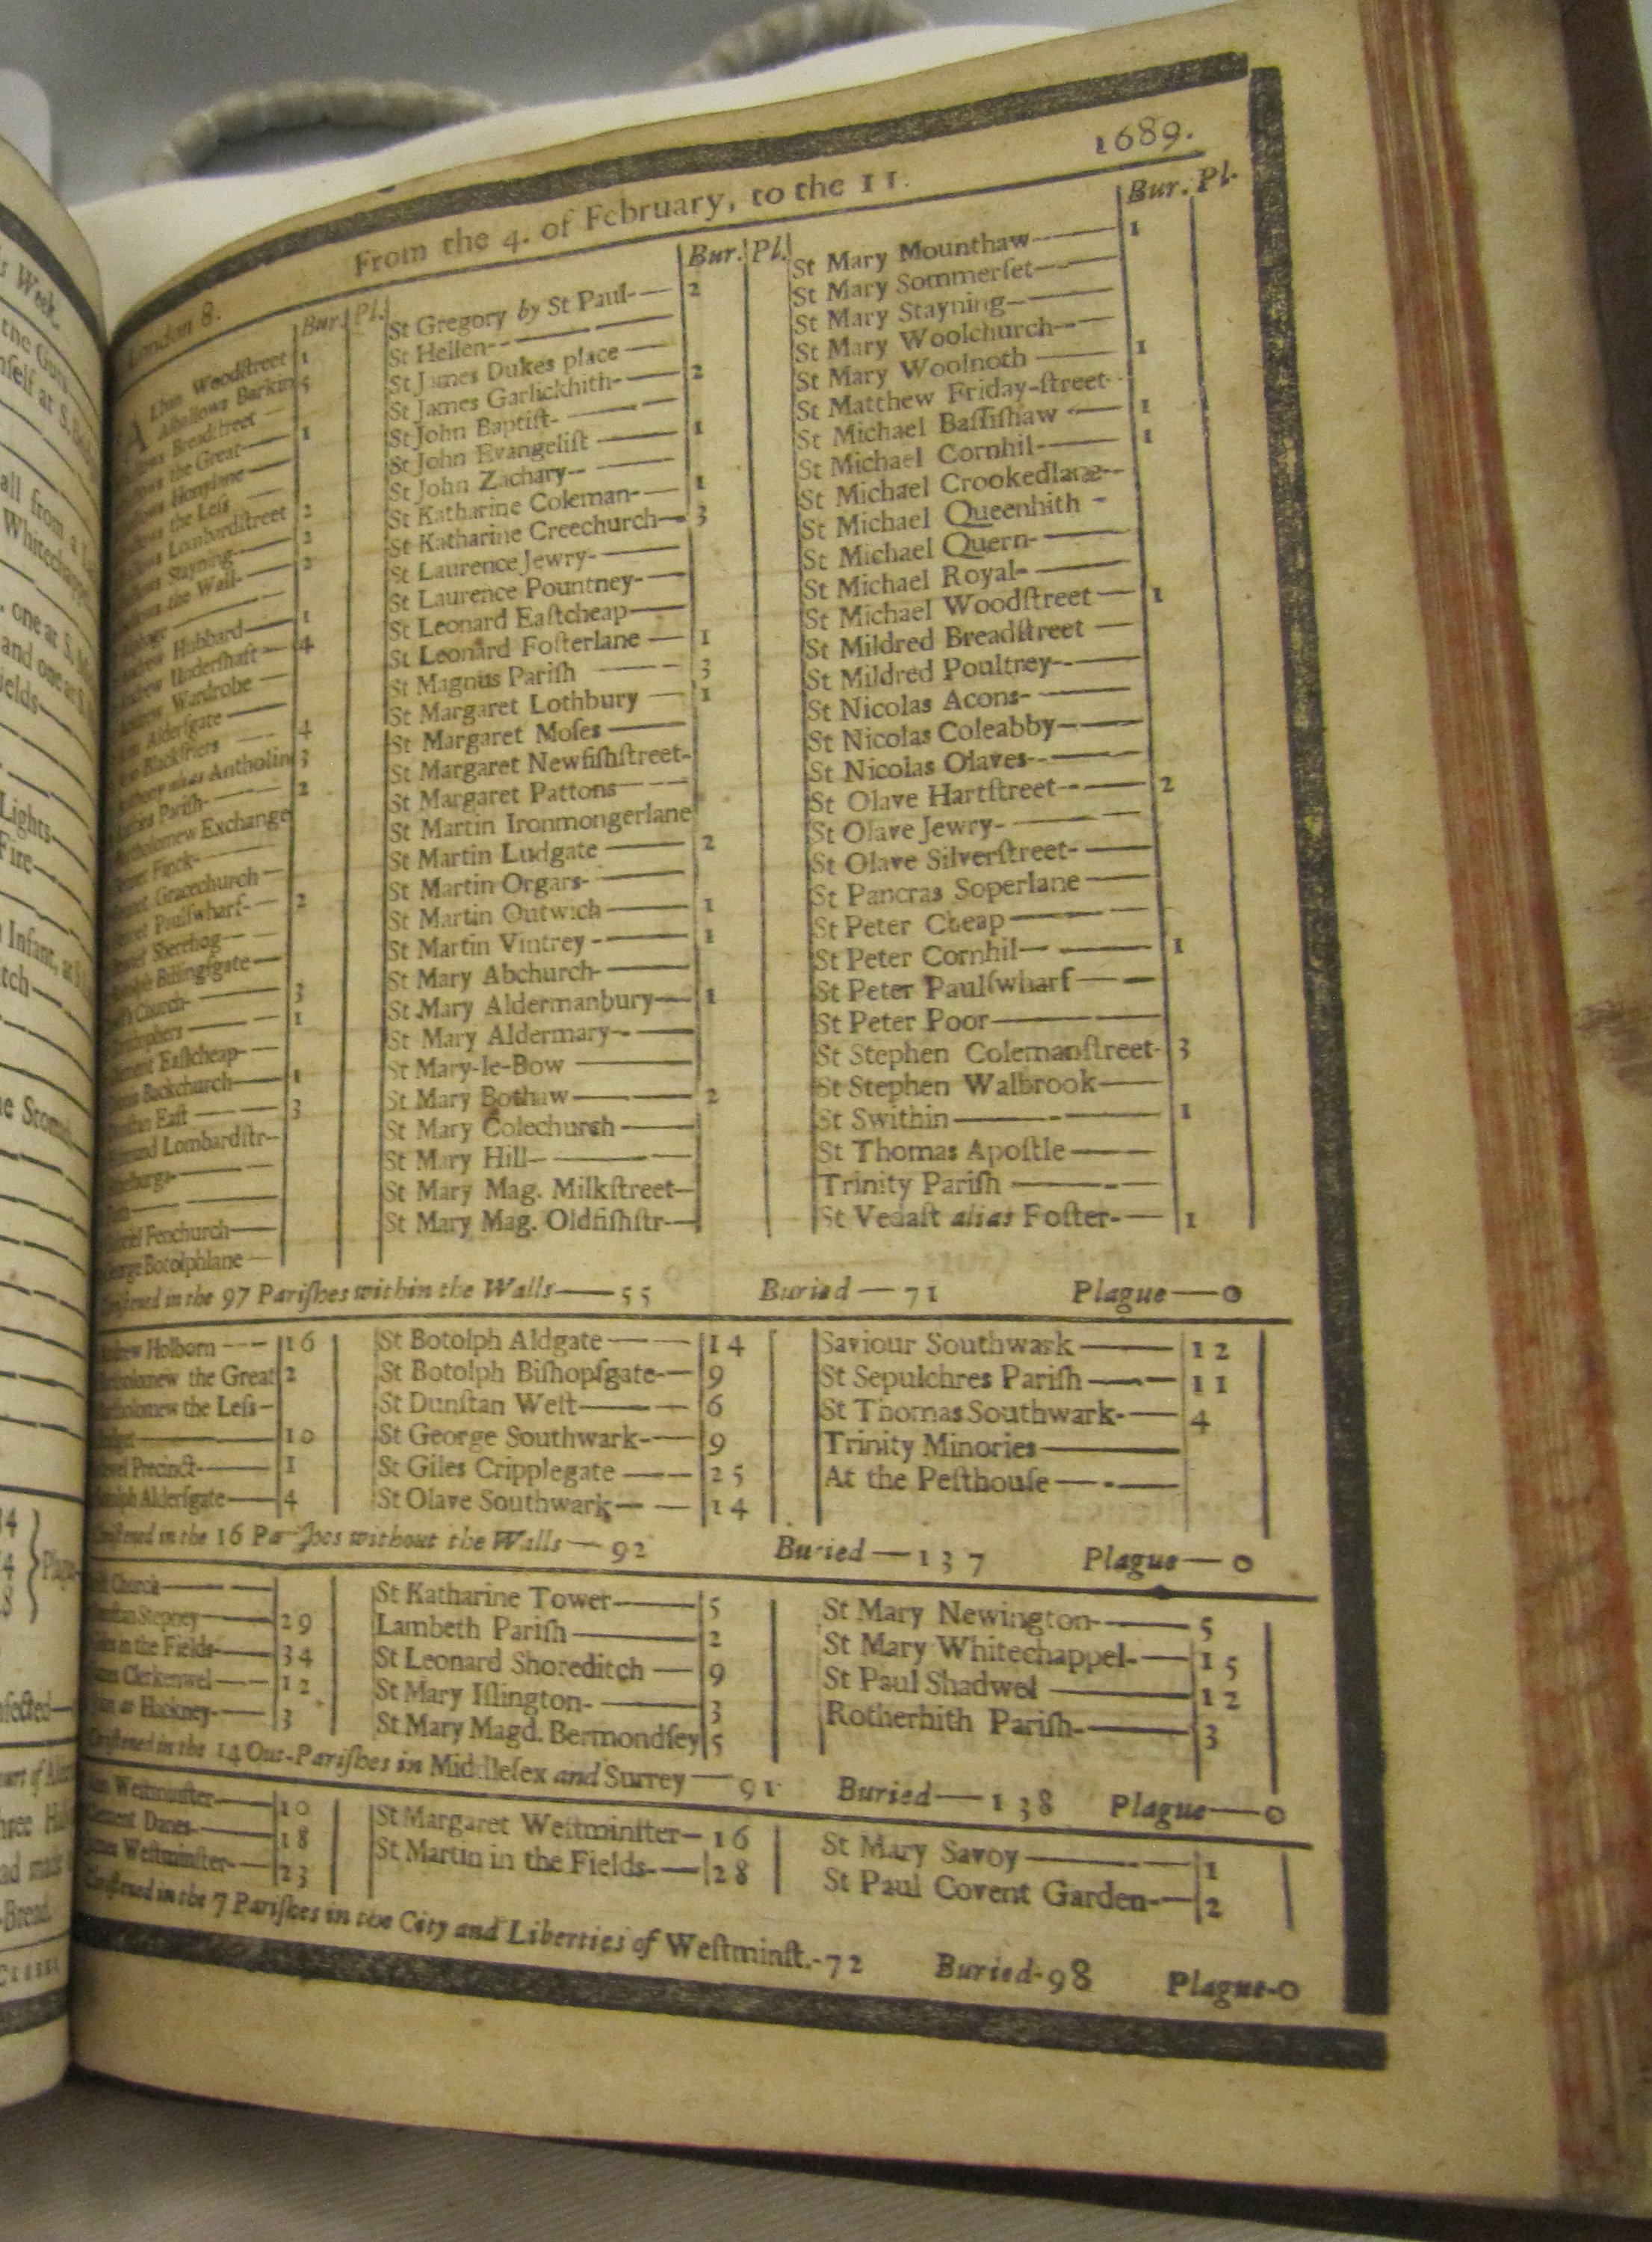 London 8.
From the 4. of February, to the 11.
1689.
Bur. Pl.
Woodſtreet 1
Alhallows Barkin 5
Breadſtreet
the Great 1
Honylane
the Leſs
Lombardſtreet 2
Stayning 2
the Wall 2
Hubbard 1
Underſhaft 4
Wardrobe
Alderſgate
Blackfriers 4
alias Antholin 3
Pariſh 2
Exchange
Finck
Gracechurch
Paulſwharf 2
Sherehog
Billingſgate
Church 3
1
Eaſtcheap
Backchurch 1
Eaſt 3
Lombardſtr
Fenchurch
Botolphlane
Bur. Pl.
St Gregory by St Paul 2
St Hellen
St James Dukes place
St James Garlickhith 2
St John Baptiſt
St John Evangeliſt 1
St John Zachary
St Katharine Coleman 1
St Katharine Creechurch 3
St Laurence Jewry
St Laurence Pountney
St Leonard Eaſtcheap
St Leonard Foſterlane 1
St Magnus Pariſh 3
St Margaret Lothbury 1
St Margaret Moſes
St Margaret Newfiſhſtreet
St Margaret Pattons
St Martin Ironmongerlane
St Martin Ludgate 2
St Martin Orgars
St Martin Outwich 1
St Martin Vintrey 1
St Mary Abchurch
St Mary Aldermanbury 1
St Mary Aldermary
St Mary-le-Bow
St Mary Bothaw 2
St Mary Colechurch
St Mary Hill
St Mary Mag. Milkſtreet
St Mary Mag. Oldfiſhſtr
Bur. Pl.
St Mary Mounthaw 1
St Mary Sommerſet
St Mary Stayning
St Mary Woolchurch
St Mary Woolnoth 1
St Matthew Friday-ſtreet
St Michael Baſſiſhaw 1
St Michael Cornhil 1
St Michael Crookedlane
St Michael Queenhith
St Michael Quern
St Michael Royal
St Michael Woodſtreet 1
St Mildred Breadſtreet
St Mildred Poultrey
St Nicolas Acons
St Nicolas Coleabby
St Nicolas Olaves
St Olave Hartſtreet 2
St Olave Jewry
St Olave Silverſtreet
St Pancras Soperlane
St Peter Cheap
St Peter Cornhil 1
St Peter Paulſwharf
St Peter Poor
St Stephen Colemanſtreet 3
St Stephen Walbrook
St Swithin 1
St Thomas Apoſtle
Trinity Pariſh
St Vedaſt alias Foſter 1
in the 97 Pariſhes within the Walls 55 Buried 71 Plague 0
Holborn 16
the Great 2
the Leſs
10
Precinct 1
Alderſgate 4
St Botolph Aldgate 14
St Botolph Biſhopſgate 9
St Dunſtan Weſt 6
St George Southwark 9
St Giles Cripplegate 25
St Olave Southwark 14
Saviour Southwark 12
St Sepulchres Pariſh 11
St Thomas Southwark 4
Trinity Minories
At the Peſthouſe
in the 16 Pariſhes without the Walls 92 Buried 137 Plague 0
Church
Stepney 29
in the Fields 34
Clerkenwel 12
at Hackney 3
St Katharine Tower 5
Lambeth Pariſh 2
St Leonard Shoreditch 9
St Mary Iſlington 3
St Mary Magd. Bermondſey 5
St Mary Newington 5
St Mary Whitechappel 15
St Paul Shadwel 12
Rotherhith Pariſh 3
in the 14 Out-Pariſhes in Middleſex and Surrey 91 Buried 138 Plague 0
Weſtminſter 10
Danes 18
Weſtminſter 23
St Margaret Weſtminſter 16
St Martin in the Fields 28
St Mary Savoy 1
St Paul Covent Garden 2
in the 7 Pariſhes in the City and Liberties of Weſtminſt. 72 Buried 98 Plague 0